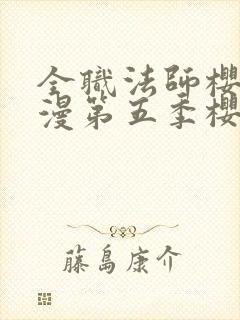 全職法師櫻
漫第五季櫻
藤島康介